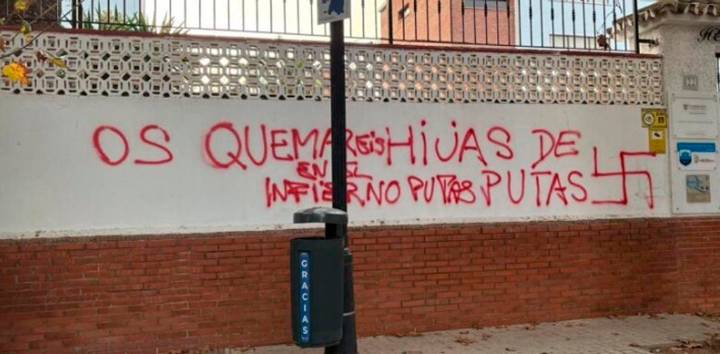 OS QUEMAREIS HIJAS DE
EN EL
INFIERNO PUTAS PUTAS
GRACIAS